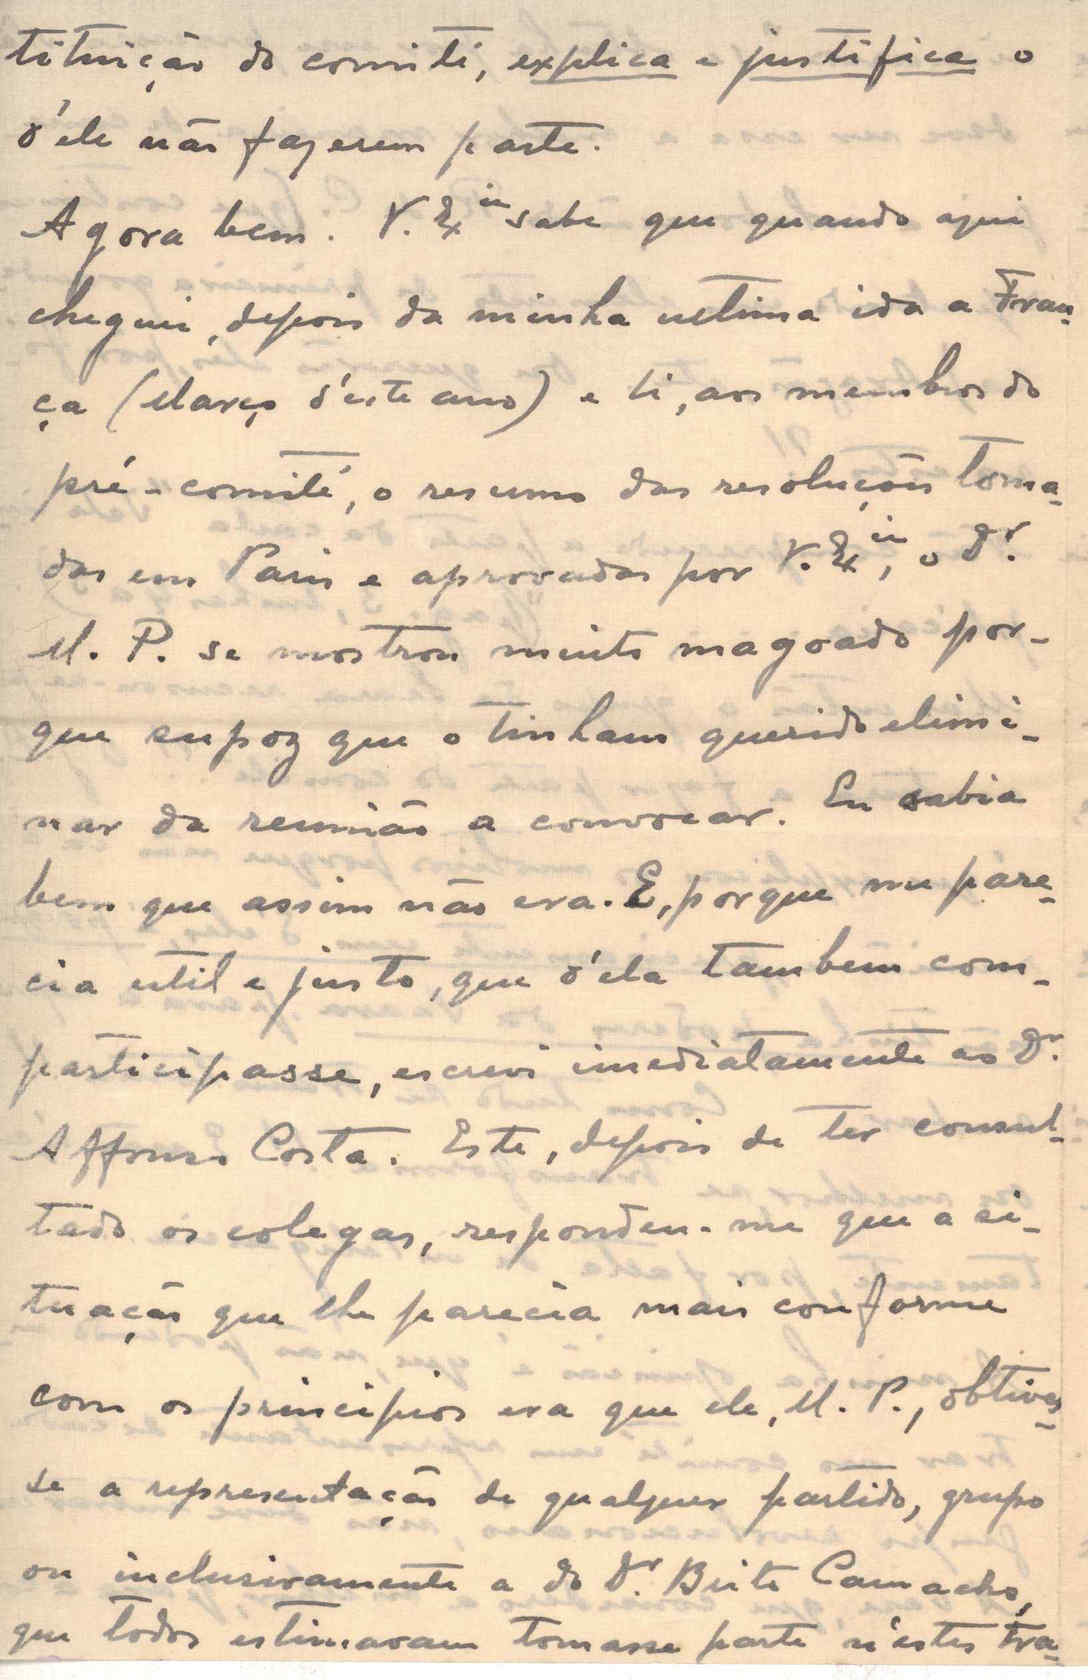 tituição do comité, explica e justifica o
d'ele não fazerem parte.
Agora bem. V. Exia sabe que quando aqui
cheguei, depois da minha ultima ida a Fran-
ça (Março d'este ano) e li, aos membros do
pré-comité, o resumo das resoluções toma-
das em Paris e aprovadas por V. Exia, o Dr.
M. P. se mostrou muito magoado por-
que supoz que o tinham querido elimi-
nar da reunião a convocar. Eu sabia
bem que assim não era. E, porque me pare-
cia util e justo, que d'ela tambem com-
participasse, escrevi imediatamente ao Dr.
Affonso Costa. Este, depois de ter consul-
tado os colegas, respondeu-me que a si-
tuação que lhe parecia mais conforme
com os principios era que ele, M. P., obtives-
se a representação de qualquer partido, grupo
ou inclusivamente a do Dr. Brito Camacho,
que todos estimavam tomasse parte n'estes tra-